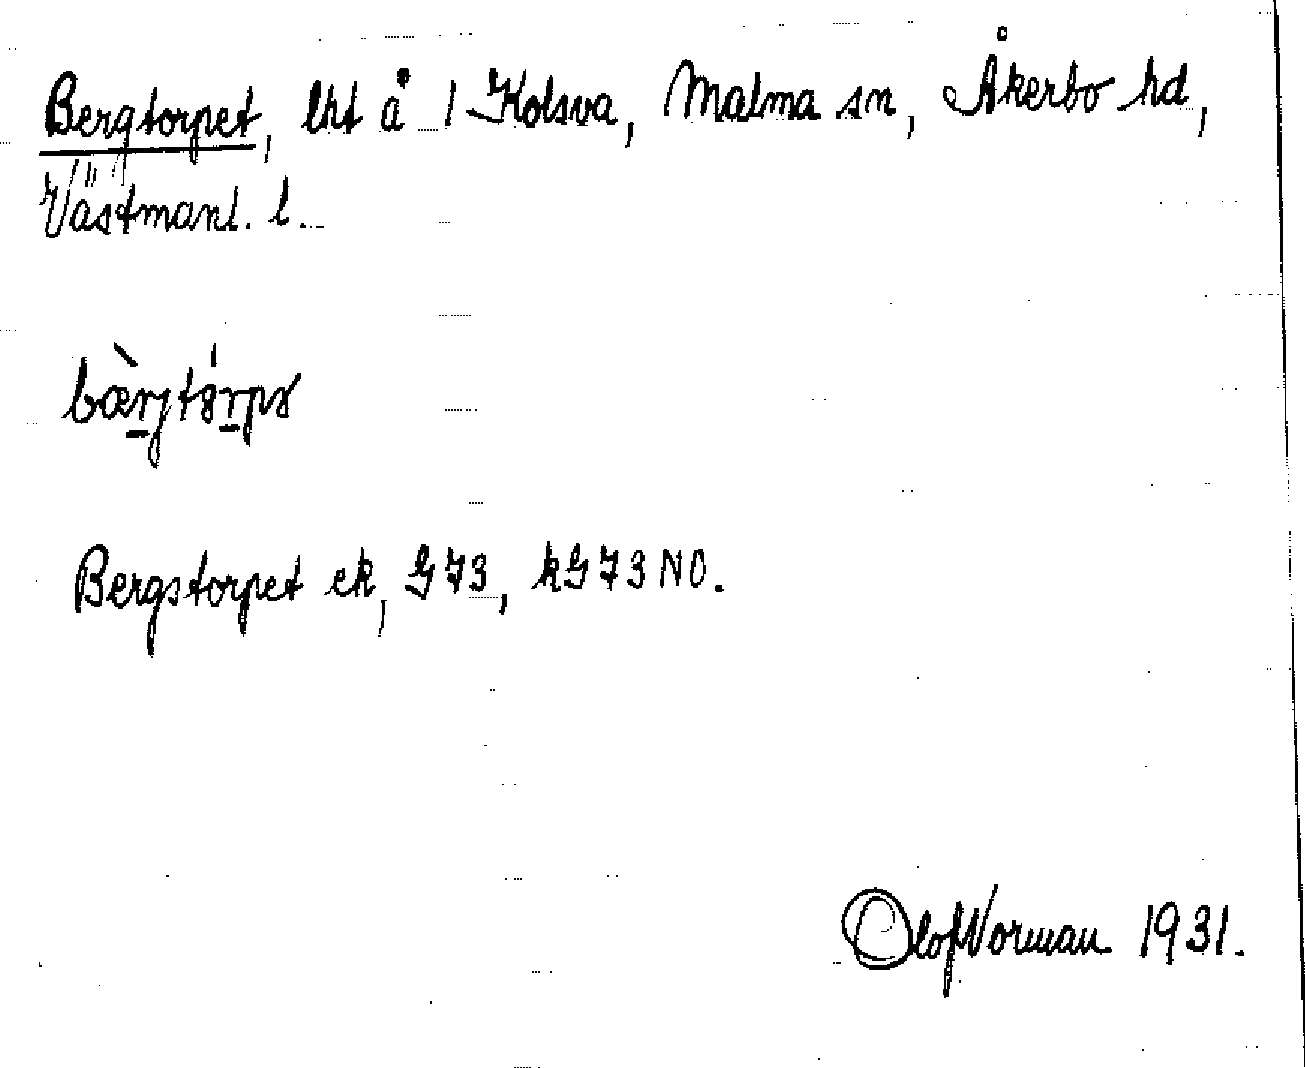 Bergtorpet, lht å 1 Kolsva, Malma sn, Åkerbo hd,
Västmanl. l.
Bergstorpet ek, G73, kG73NO.
Olof Norman 1931.